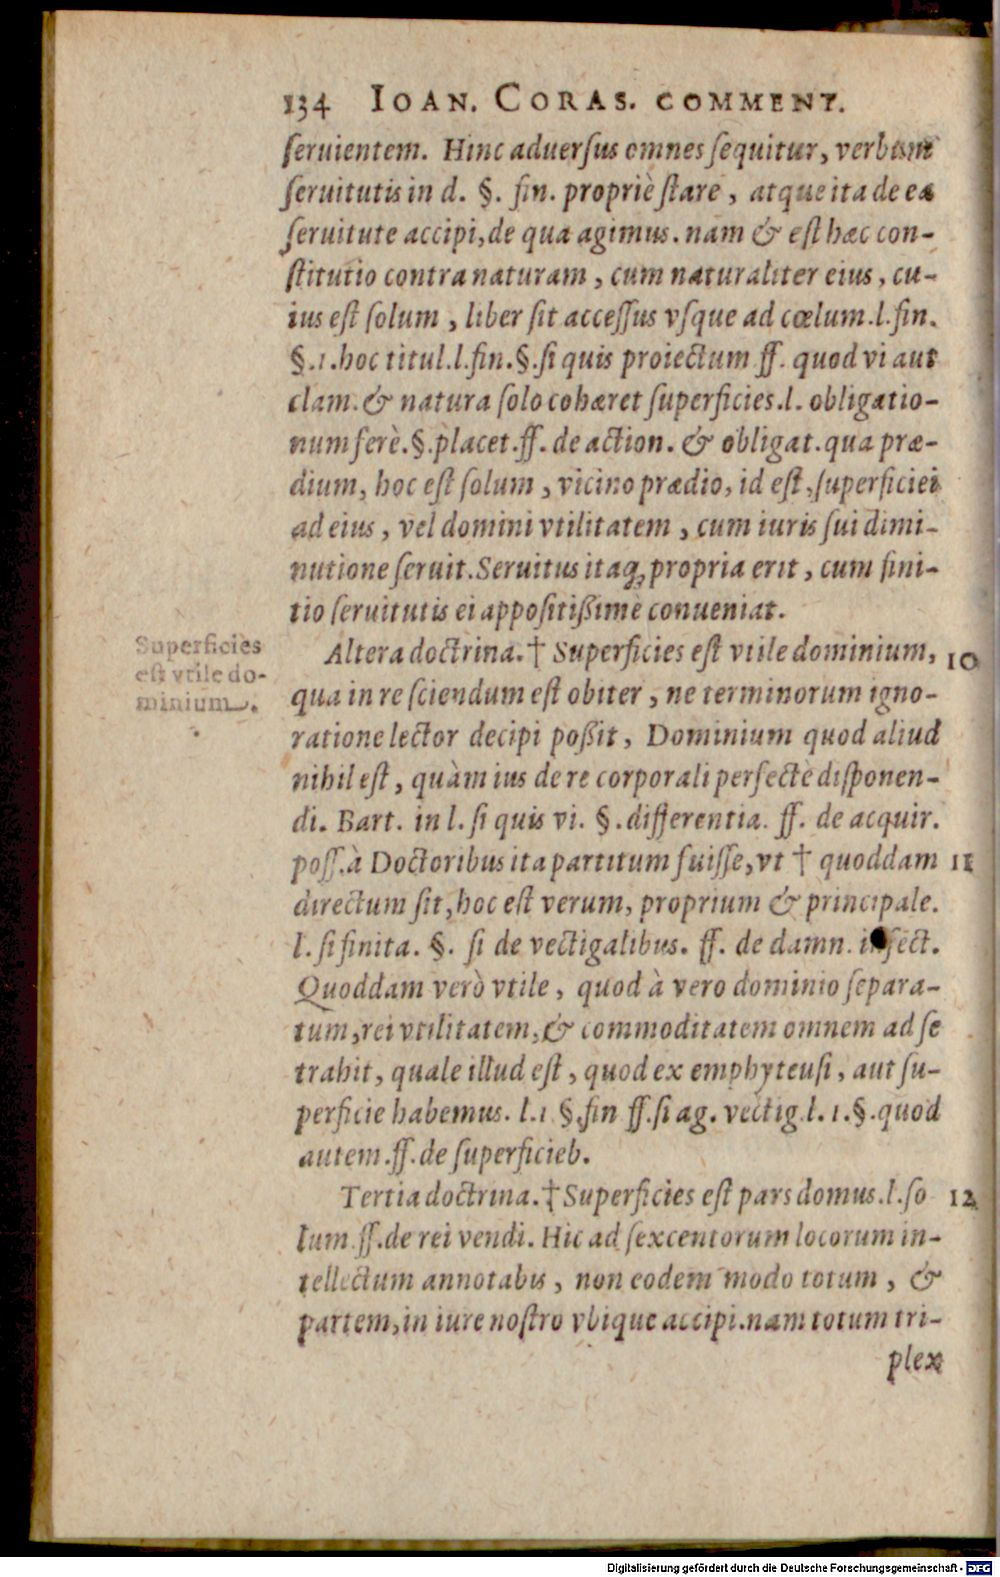 134 IOAN. CORAS. COMMENT.
ſeruientem. Hinc aduerſus omnes ſequitur, verbum
ſeruitutis in d. §. fin. propriè ſtare, atque ita de ea
ſeruitute accipi, de qua agimus. nam & eſt hæc con-
ſtitutio contra naturam, cum naturaliter eius, cu-
ius eſt ſolum, liber ſit acceſſus vſque ad cœlum. l. fin.
§. 1. hoc titul. l. fin. §. ſi quis proiectum ff. quod vi aut
clam. & natura ſolo cohæret ſuperficies. l. obligatio-
num ferè. §. placet. ff. de action. & obligat. qua præ-
dium, hoc eſt ſolum, vicino prædio, id eſt, ſuperficiei
ad eius, vel domini vtilitatem, cum iuris ſui dimi-
nutione ſeruit. Seruitus itaq; propria erit, cum fini-
tio ſeruitutis ei appoſitißimè conueniat.
Superficies
eſt vtile do-
minium.
Altera doctrina. † Superficies eſt vtile dominium, 10
qua in re ſciendum eſt obiter, ne terminorum igno-
ratione lector decipi poßit, Dominium quod aliud
nihil eſt, quàm ius de re corporali perfectè diſponen-
di. Bart. in l. ſi quis vi. §. differentia. ff. de acquir.
poſſ. à Doctoribus ita partitum fuiſſe, vt † quoddam 11
directum ſit, hoc eſt verum, proprium & principale.
l. ſi finita. §. ſi de vectigalibus. ff. de damn. infect.
Quoddam verò vtile, quod à vero dominio ſepara-
tum, rei vtilitatem, & commoditatem omnem ad ſe
trahit, quale illud eſt, quod ex emphyteuſi, aut ſu-
perficie habemus. l. 1 §. fin ff. ſi ag. vectig. l. 1. §. quod
autem. ff. de ſuperficieb.
Tertia doctrina. † Superficies eſt pars domus. l. ſo 12
lum. ff. de rei vendi. Hic ad ſexcentorum locorum in-
tellectum annotabis, non eodem modo totum, &
partem, in iure noſtro vbique accipi. nam totum tri-
plex
Digitalisierung gefördert durch die Deutsche Forschungsgemeinschaft - DFG